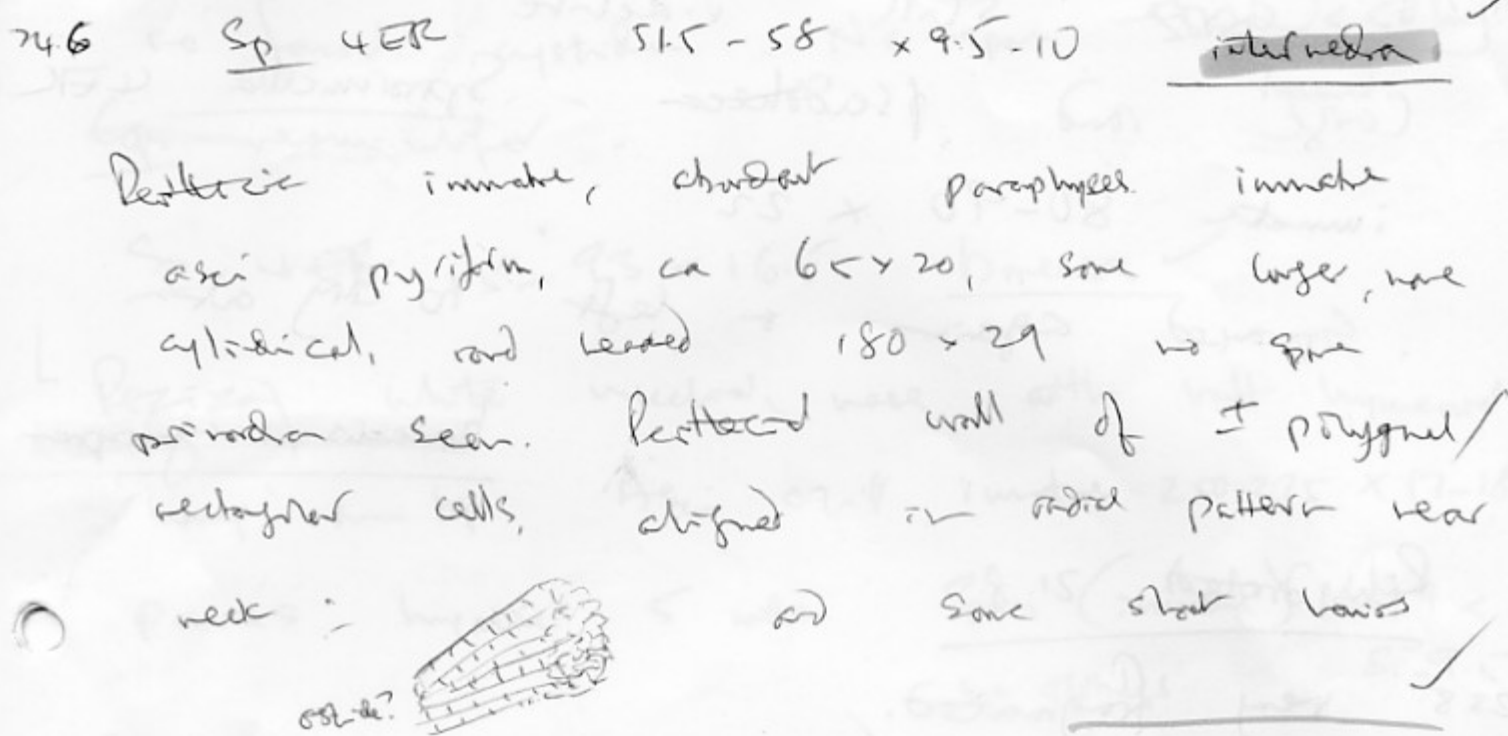 746 Sp 4ER 51.5 - 58 x 9.5-10 intermedia
Perithecia immature, abundant paraphyses immature
asci pyriform, ca 65 x 20, some longer, more
cylindrical, and headed 180 x 29 no spore
primordia seen. Perithecial wall of ± polygonal/
rectangular cells, aligned in radial pattern near
neck :- and some short hairs
ostiole?